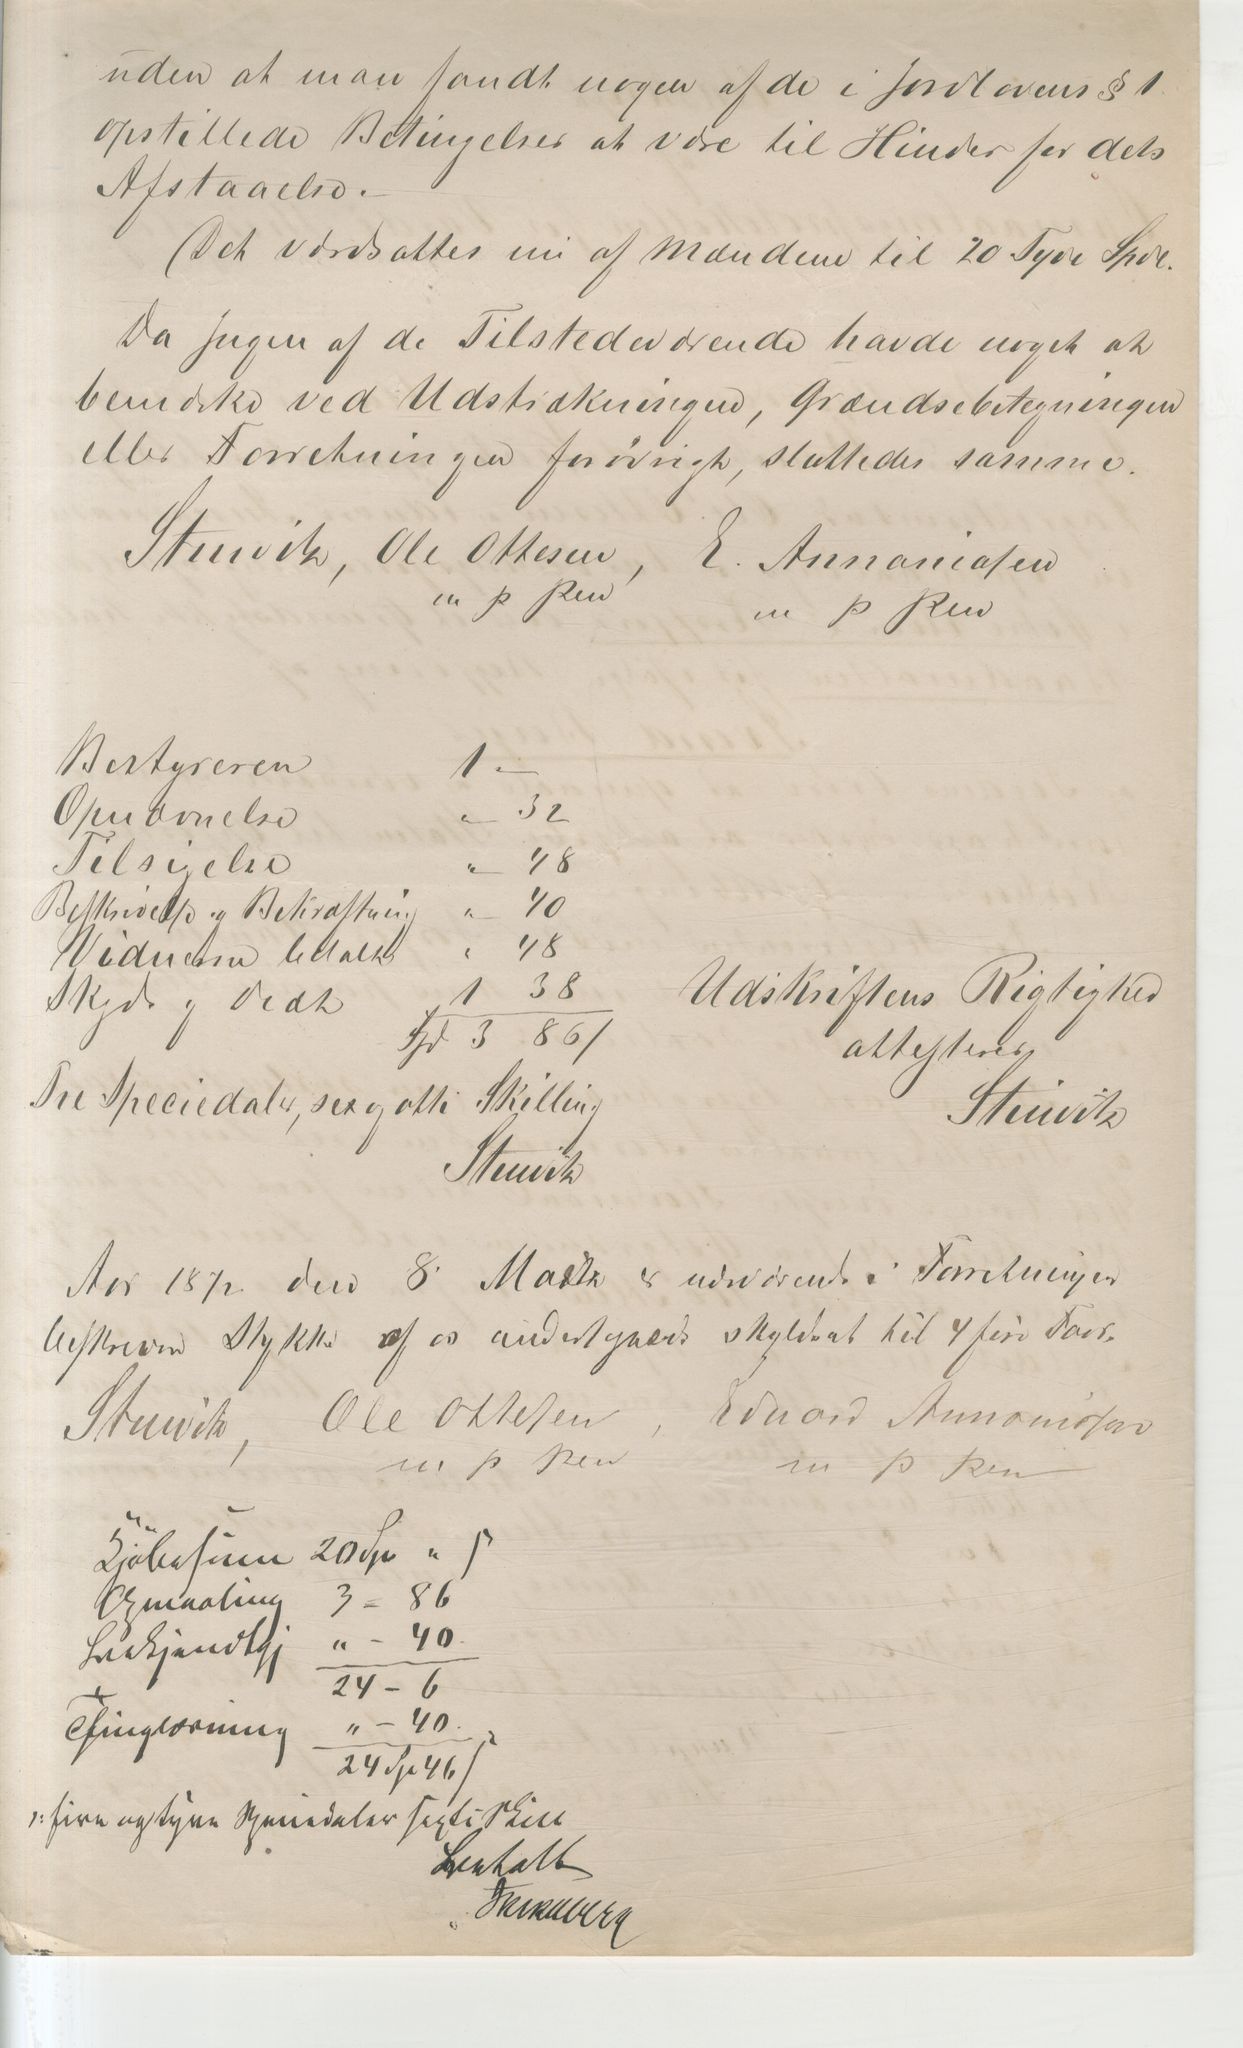 uden at man fandt nogen af de i Jordlovens § 1.
opstillede Betingelser at være til Hinder for dets
Afstaaelse.-
Det værdsattes nu af Mændene til 20 Tyve Spdl.
Da Ingen af de Tilstedeværende havde noget at
bemærke ved Udstrækningen, Grændsebetegningen
eller Forretningen forøvrigt, sluttedes samme.
Stuwitz, Ole Ottesen, E. Annaniasen
m p Pen m p Pen
Bestyreren 1 -
Opnævnelse " 32
Tilsigelse " 48
Beskrivelse og Bekræftning " 40
Vidnerne betalt " 48
Skyds og Diæt 1 38
Spd 3 86/
Tre Speciedaler, sex og otti Skilling
Stuwitz
Udskriftens Rigtighed
attesterer
Stuwitz
Aar 1872 den 8. Martz er nærværende i Forretningen
beskreven Stykke af os undertegnede skyldsat til 4 fire Tver.
Stuwitz, Ole Ottesen, Eduard Annaniasen
m p Pen m p Pen
Kjöbesum 20 Sp " ſ
Opmaaling 3 - 86
Bekjendtgj " - 40
24 - 6
Thinglæsning " - 40
24 Sp 46 ſ
ɔ: fire og tyve Speciedaler Skill
Betalt